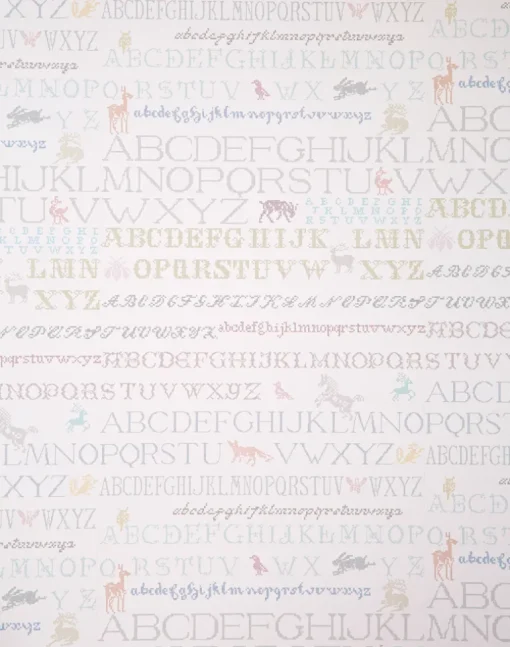 XYZ ABCDEFGHIJKLMNOPQRSTUV WXYZ ABC
UV WXYZ abcdefghijklmnopqrstuvwxyz
rstuvwxyz ABCDEFGHIJKLMNOPQ ABCD
LMNOPQRSTUV WX YZ abcdef
YZ abcdefghijklmnopqrstuvwxyz ABC
wxyz ABCDEFGHIJKLMN
HIJKLMNOPQRSTUV WX
TU VWXYZ ABCDEFGHI JKLMNOP QRSTUV WXYZ ABCD
ABCDEFGHIJK LMN OPQ
LMN OPQRSTUVW XYZ ABCDEFGHIJK
XYZ ABCDEFGHIJKLMNOPQRSTUVWX
NOPQRSTUVWXYZ abcdefghijklmnopqrstuvwxyz ABCDE
pqrstuvwxyz ABCDEFGHIJKLMNOPQRSTUVW
MNOPQRSTUVWXYZ ABCD
ABCDEFGHIJKLMNOPQRS
LMNOPQRSTU VWXYZ ABCDEFGH
XYZ ABCDEFGHIJKLMNOPQRSTUV WXYZ ABC
UV WXYZ abcdefghijklmnopqrstuvwxyz
rstuvwxyz ABCDEFGHIJKLMNOPQ ABCD
LMNOPQRSTUV WX YZ abcdef
YZ abcdefghijklmnopqrstuvwxyz ABC
wxyz ABCDEFGHIJKLMN